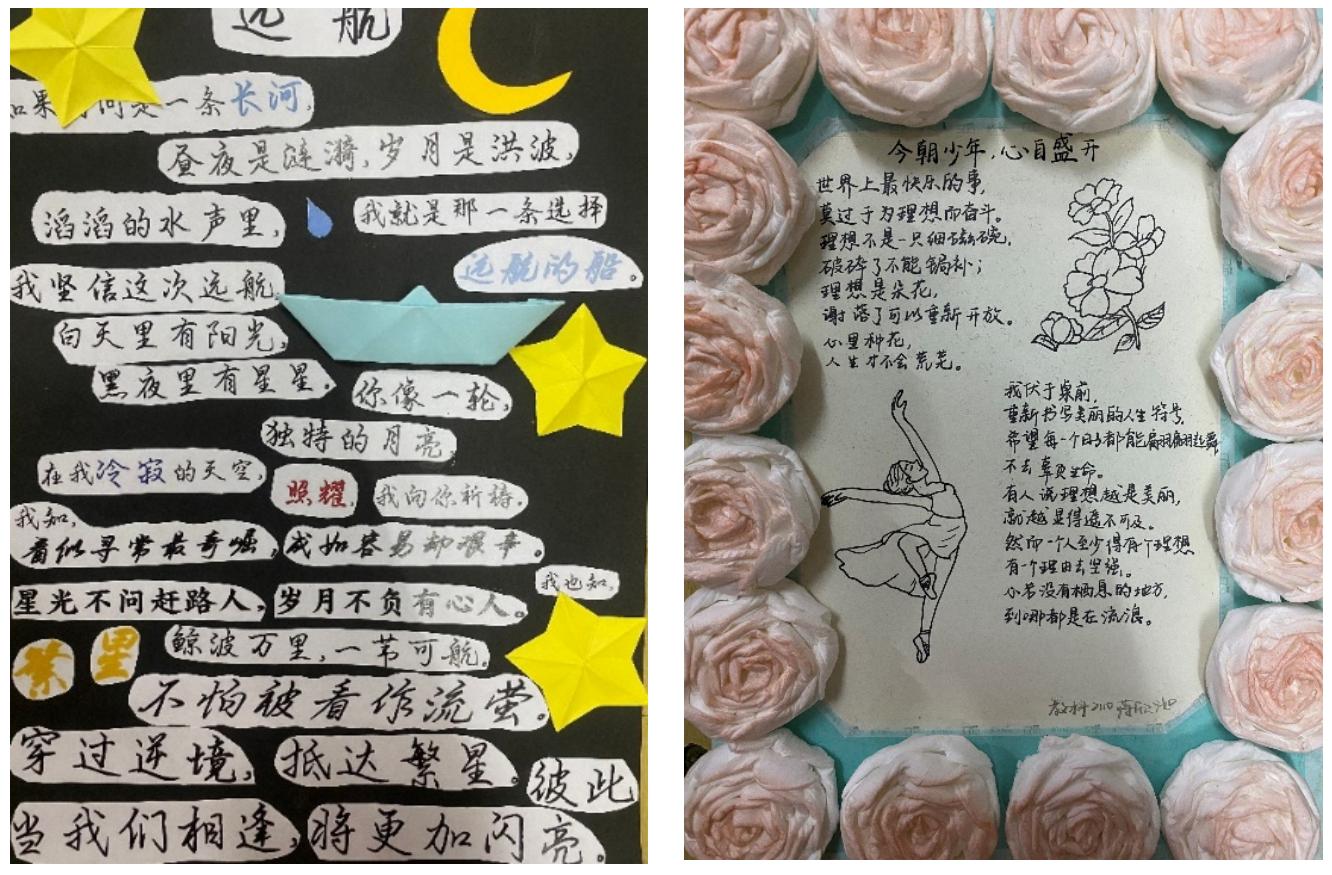 远航
如果时间是一条长河,
昼夜是涟漪,岁月是洪波,
滔滔的水声里,
我就是那一条选择
远航的船。
我坚信这次远航
白天里有阳光,
黑夜里有星星。
你像一轮,
独特的月亮,
在我冷寂的天空,
照耀,
我向你祈祷。
我知,
看似寻常最奇崛,成如容易却艰辛。
我也知,
星光不问赶路人,岁月不负有心人。
鲸波万里,一苇可航。
繁星
不怕被看作流萤。
穿过逆境,抵达繁星。
彼此
当我们相逢,将更加闪亮。
今朝少年,心自盛开
世界上最快乐的事,
莫过于为理想而奋斗。
理想不是一只细磁碗,
破碎了不能锔补;
理想是朵花,
谢落了可以重新开放。
心里种花,
人生才不会荒芜。
我伏于桌前,
重新书写美丽的人生符号,
希望每一个日子都能翩翩起舞
不去辜负生命。
有人说理想越是美丽,
就越显得遥不可及。
然而一个人至少得有个理想
有个理由去坚强。
心若没有栖息的地方,
到哪都是在流浪。